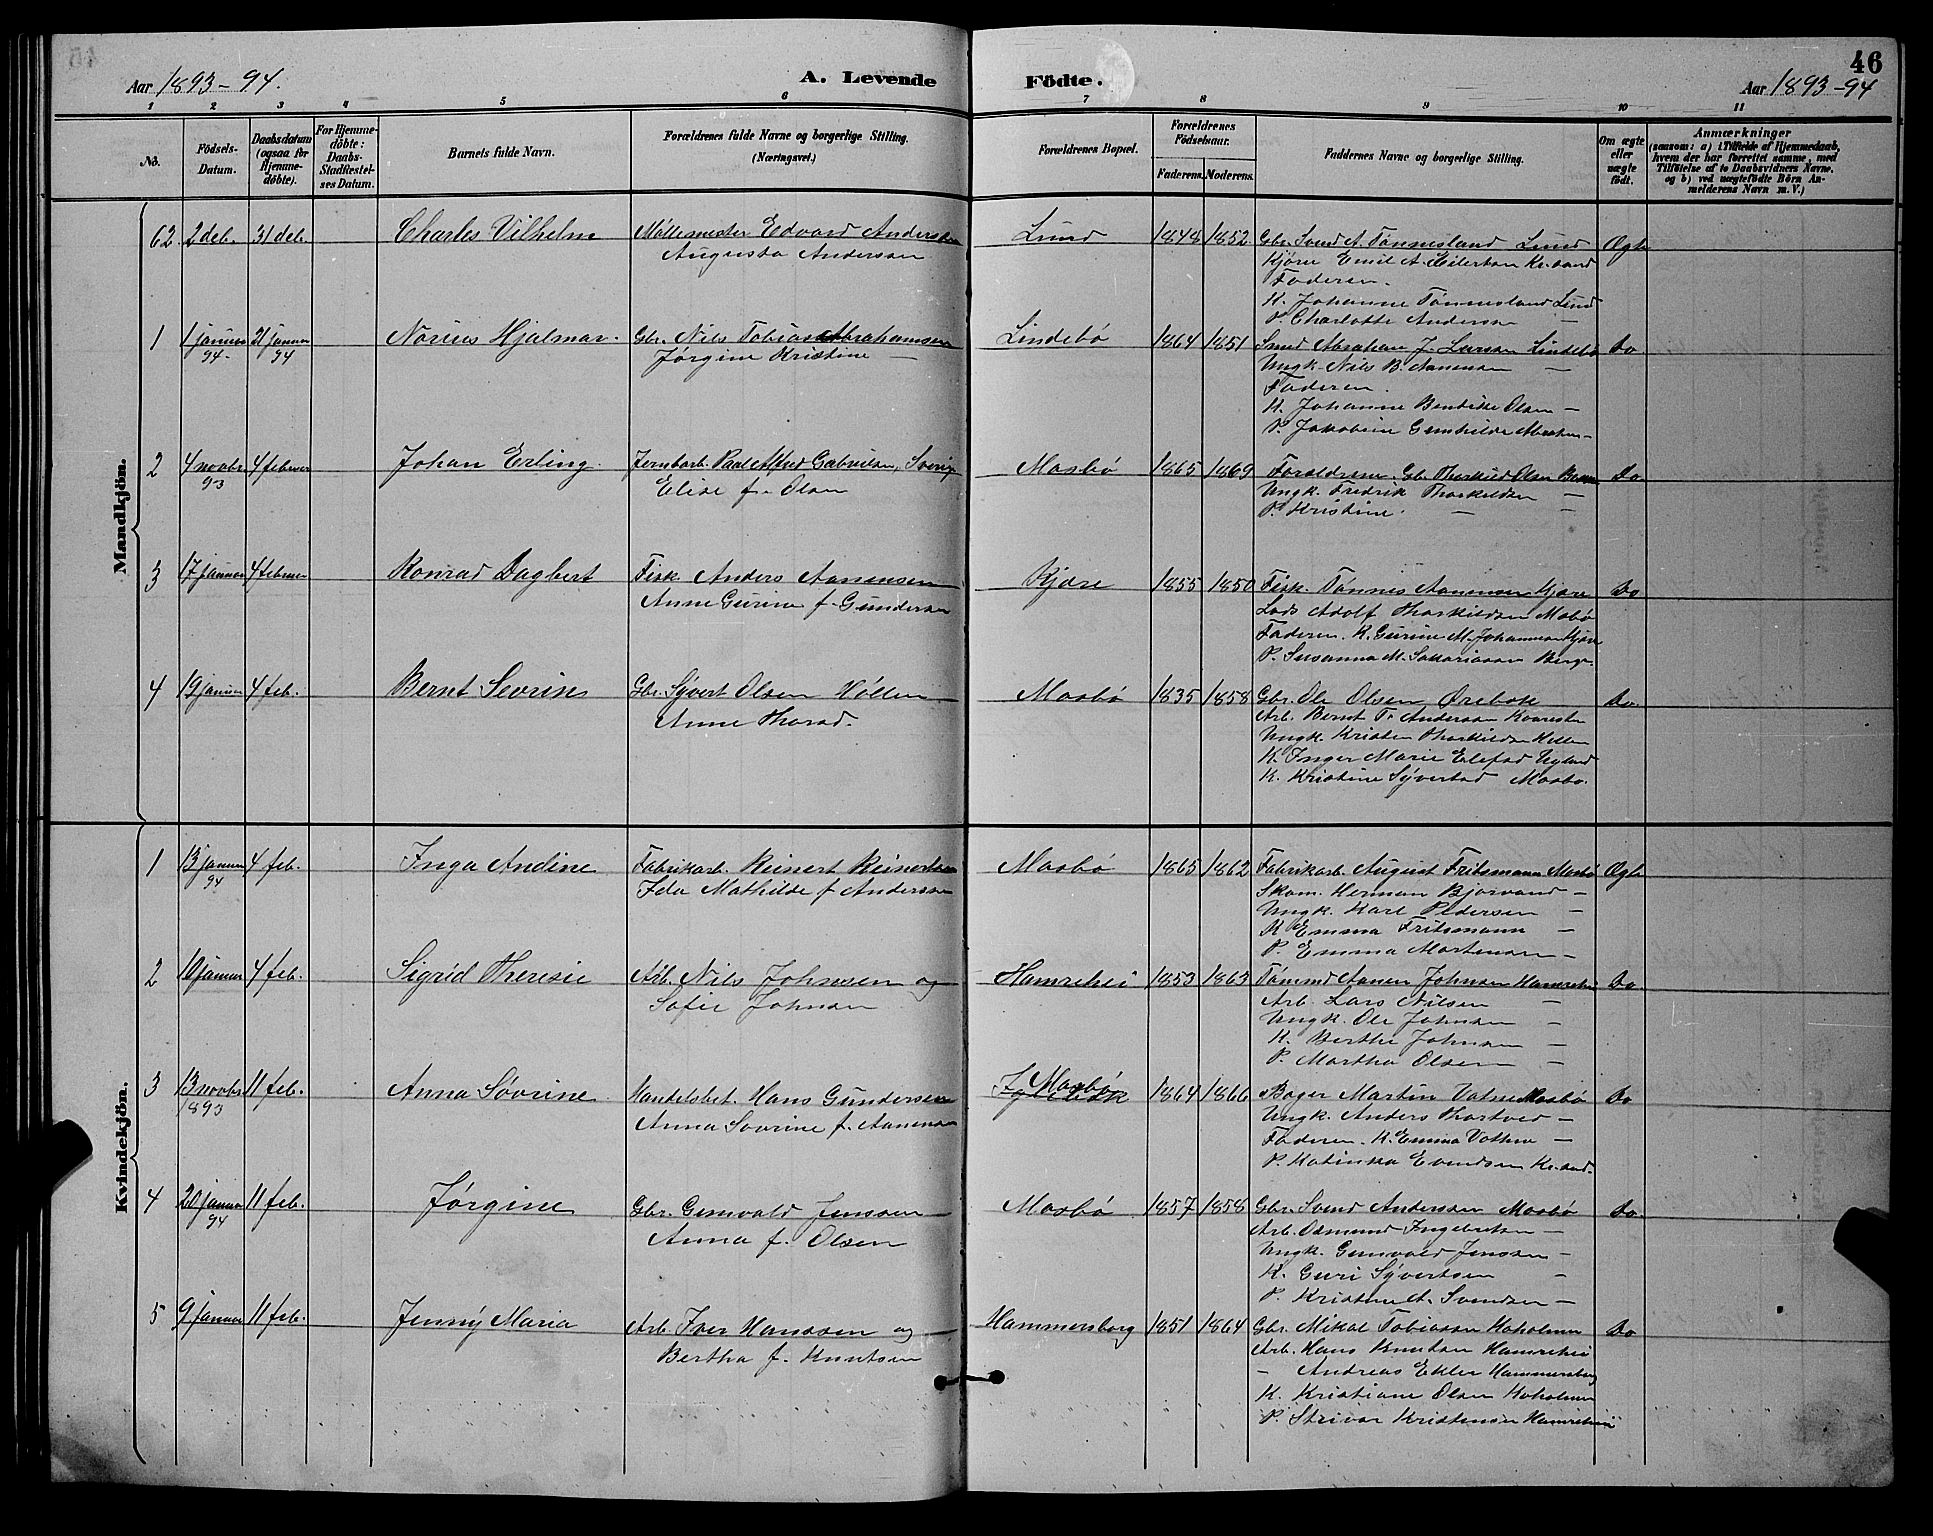 46
Aar 1893-94.
A. Levende Födte.
Aar 1893-94
1 2 3 4 5 6 7 8 9 10 11
No.
Födsels-Datum.
Daabsdatum (ogsaa for Hjemme-döbte).
For Hjemme-döbte: Daabs-Stadfæstel-ses Datum.
Barnets fulde Navn.
Forældrenes fulde Navne og borgerlige Stilling. (Næringsvei.)
Forældrenes Bopæl.
Forældrenes Födselsaar.
Faderens. Moderens.
Faddernes Navne og borgerlige Stilling.
Om ægte eller uægte födt.
Anmærkninger
(saasom: a) i Tilfælde af Hjemmedaab, hvem der har forrettet samme, med Tilföielse af to Daabsvidners Navne, og b) ved uægtefödte Börn An-melderens Navn m. V.)
Mandkjön.
62 2 deb. 31 deb. Charles Vilhelm Møllemester Edvard Anderssen Lund 1848 1852 Gbr. Svend A. Tønnesland Lund Ægte
Augusta Anderssen Emil A. Eilertsen Kr.sand
Faderen.
K. Johanne Tønnesland Lund
P. Charlotte Anderssen —
1 1 januar 94 21 januar 94 Norius Hjalmar. Gbr. Nils Tobias Abrahamsen Lindebø 1864 1851 Smed Abraham J. Larsen Lindebø Do.
Jørgine Kristine — Ungk. Nils B. Aanensen —
Faderen.
K. Johanne Bentikke Olsen —
P. Jakobine Gunhilde Abraham —
2 4 novbr. 93 4 februar Johan Erling. Jernbarb. Paal Alfred Gabrielsen, Sverige Mosbø 1865 1869 Forældrene. Gbr. Thorkild Olsen Do.
Elise f. Olsen Ungk. Fredrik Thorkildsen —
P. Kristine. — —
3 17 januar 4 februar Konrad Dagbert Fisk. Anders Aanensen Kjære 1855 1850 Fisk. Tønnes Aanensen Kjære Do
Anne Gurine f. Gundersen Lods Adolf Thorkildsen Mosbø
Faderen. K. Gurine M. Johannesen Kjære
P. Susanna M. Sakariassen Berge.
4 19 januar 4 feb. Bernt Sevrin Gbr. Syvert Olsen Høllen Mosbø 1835 1858 Gbr. Ole Olsen Ørebek Do.
Anne Thorsd. Arb. Bernt T. Anderssen
Ungk. Kristen Thorkildsen Hellen
K. Inger Marie Elefsd Ugland
K. Kristine Syvertsd Mosbø.
Kvindekjön.
1 13 januar 94 4 feb. Inga Andine Fabrikarb. Reinert Reinertsen Mosbø 1865 1862 Fabrikarb. August Fritsmann Mosbø Ægte
Ida Mathilde f. Anderssen Skom. Herman Bjorvand —
Ungk. Karl Pedersen —
K Emma Fritsmann —
P. Emma Mortensen —
2 10 januar 4 feb. Sigrid Theresie Arb. Nils Johnsen og Hamrehei 1853 1863 Tømmd Aanen Johnsen Hamrehei Do.
Sofie Johnsen Arb. Lars Nilsen —
Ungk. Ole Johnsen —
K. Berthe Johnsen —
P. Martha Olsen —
3 13 novbr. 1893 11 feb. Anna Søvrine Handelsbet. Hans Gundersen Mosbø 1864 1866 Bager Martin Vatne Mosbø Do
Anna Sovrine f. Aanensen Ungk. Anders Thortved —
Faderen. K. Emma Vathne —
P. Katinka Evendsen Kr.sand.
4 20 januar 94 11 feb. Jørgine Gbr. Gunvald Jenssen Mosbø 1857 1858 Gbr. Svend Anderssen Mosbø Do.
Anna f. Olsen Arb. Osmund Ingebretsen —
Ungk. Gunvald Jenssen —
K. Guri Syvertsen —
P. Kristine A. Svendsen —
5 9 januar 11 feb. Jenny Maria Arb. Iver Hanssen og Hammersborg 1851 1864 Gbr. Mikal Tobiassen Hoholmen Do
Bertha f. Knutsen Arb. Hans Knutsen Hamrehei
— Andreas Ekler Hammersborg
K. Kristiane Olsen Hoholmen
P. Kristensen Hamrehei